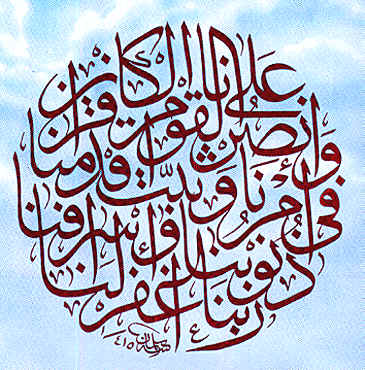 ربنا اغفر لنا
ذنوبنا وإسرافنا
في أمرنا وثبت أقدامنا
وانصرنا على القوم الكافرين
١٤١٥